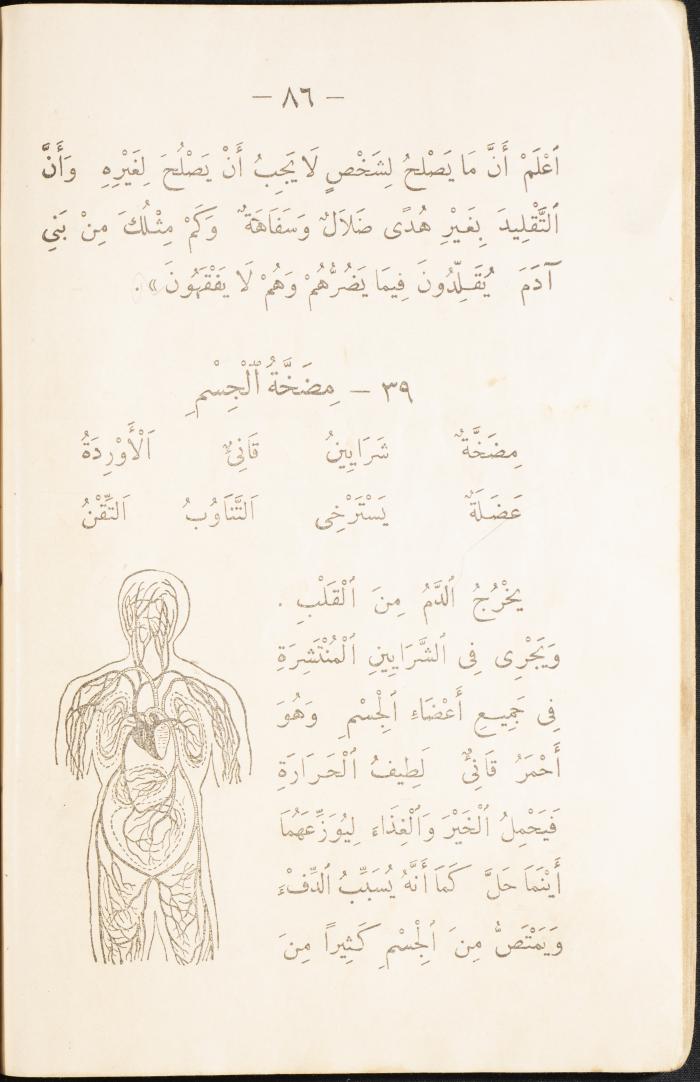 — ٨٦ —
اَعْلَمْ أَنَّ مَا يَصْلَحُ لِشَخْصٍ لَا يَجِبُ أَنْ يَصْلُحَ لِغَيْرِهِ وَأَنَّ
ٱلتَّقْلِيدَ بِغَيْرِ هُدًى ضَلَالٌ وَسَفَاهَةٌ وَكَمْ مِثْلُكَ مِنْ بَنِي
آدَمَ يُقَلِّدُونَ فِيمَا يَضُرُّهُمْ وَهُمْ لَا يَفْقَهُونَ» .
٣٩ — مِضَخَّةُ ٱلْجِسْمِ
مِضَخَّةٌ شَرَايِينُ قَانِئٌ اَلْأَوْرِدَةُ
عَضَلَةٌ يَسْتَرْخِى اَلتَّنَاوُبُ اَلتِّقْنُ
يَخْرُجُ ٱلدَّمُ مِنَ ٱلْقَلْبِ .
وَيَجْرِى فِى ٱلشَّرَايِينِ ٱلْمُنْتَشِرَةِ
فِى جَمِيعِ أَعْضَاءِ ٱلْجِسْمِ وَهُوَ
أَحْمَرُ قَانِئٌ لَطِيفُ ٱلْحَرَارَةِ
فَيَحْمِلُ ٱلْخَيْرَ وَٱلْغِذَاءَ لِيُوَزِّعَهُمَا
أَيْنَمَا حَلَّ كَمَا أَنَّهُ يُسَبِّبُ ٱلدِّفْءَ
وَيَمْتَصُّ مِنَ ٱلْجِسْمِ كَثِيرًا مِنَ